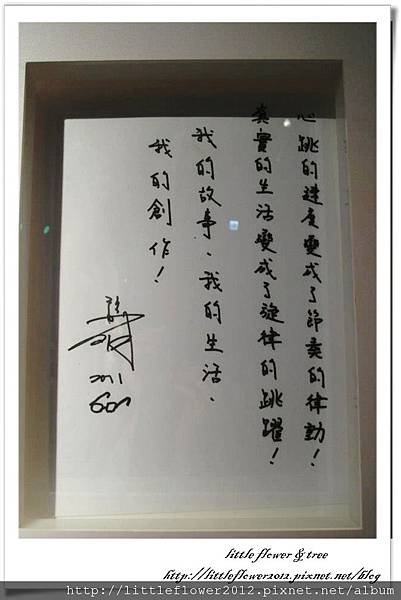 心跳的速度變成了節奏的律動！
真實的生活變成了旋律的跳躍！
我的故事、我的生活、
我的創作！
2011
little flower & tree
http://littleflower2012.pixnet.net/blog
http://littleflower2012.pixnet.net/album